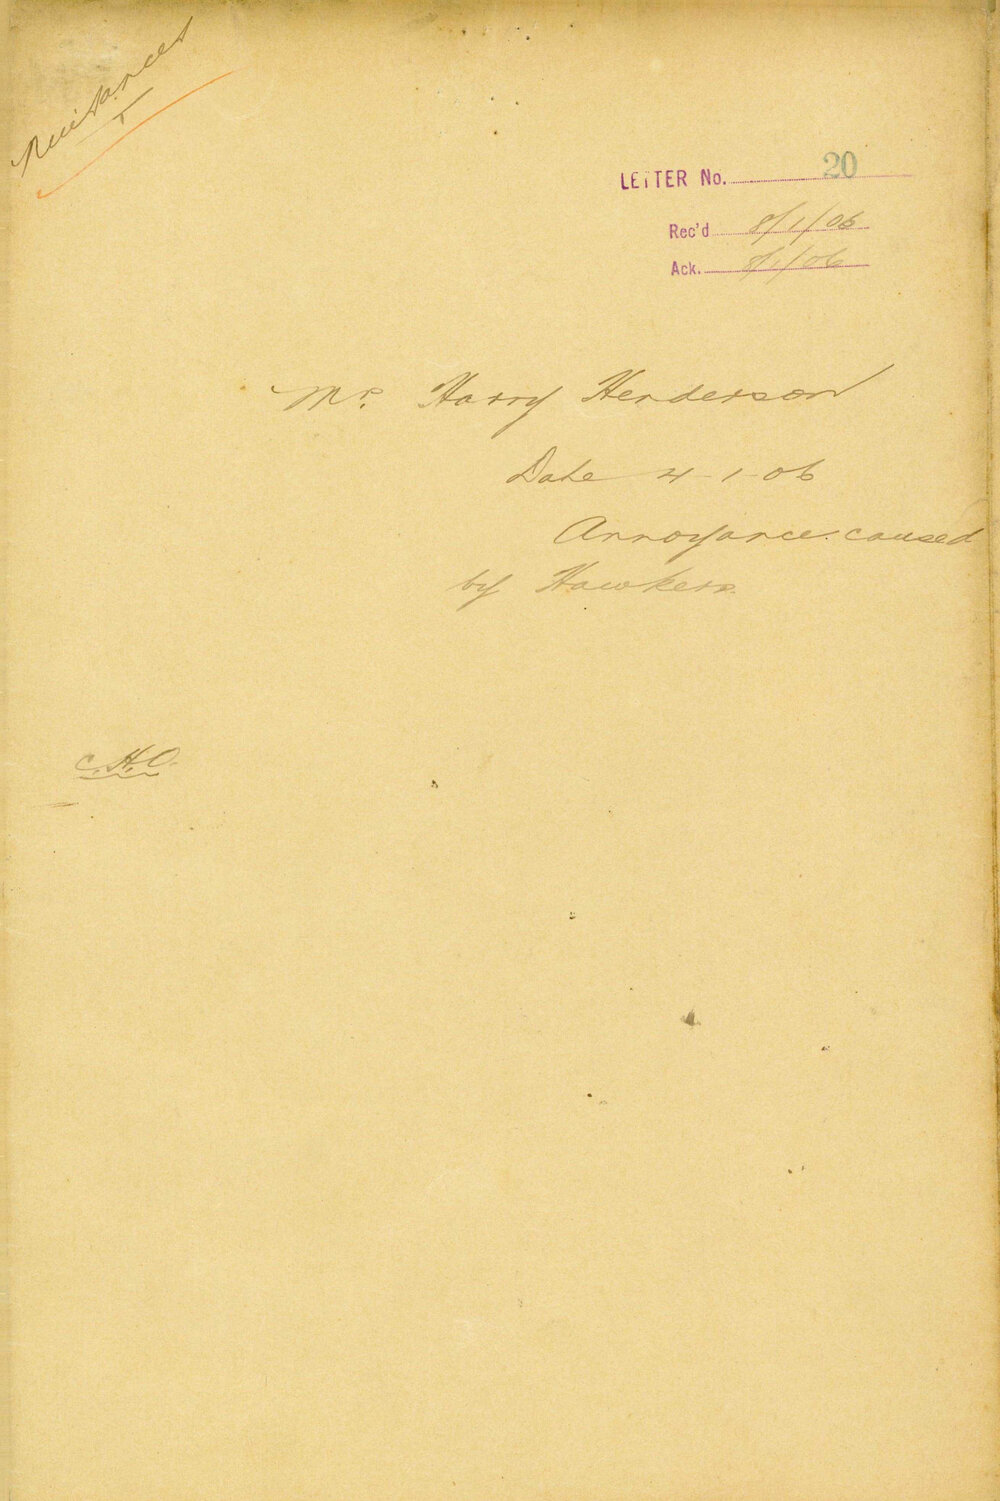 Nuisances
LETTER No. 20
Rec'd 8/1/06
Ack. 8/1/06
Mr. Harry Henderson
Date 4-1-06
Annoyance caused
by Hawkers.
C.H.O.